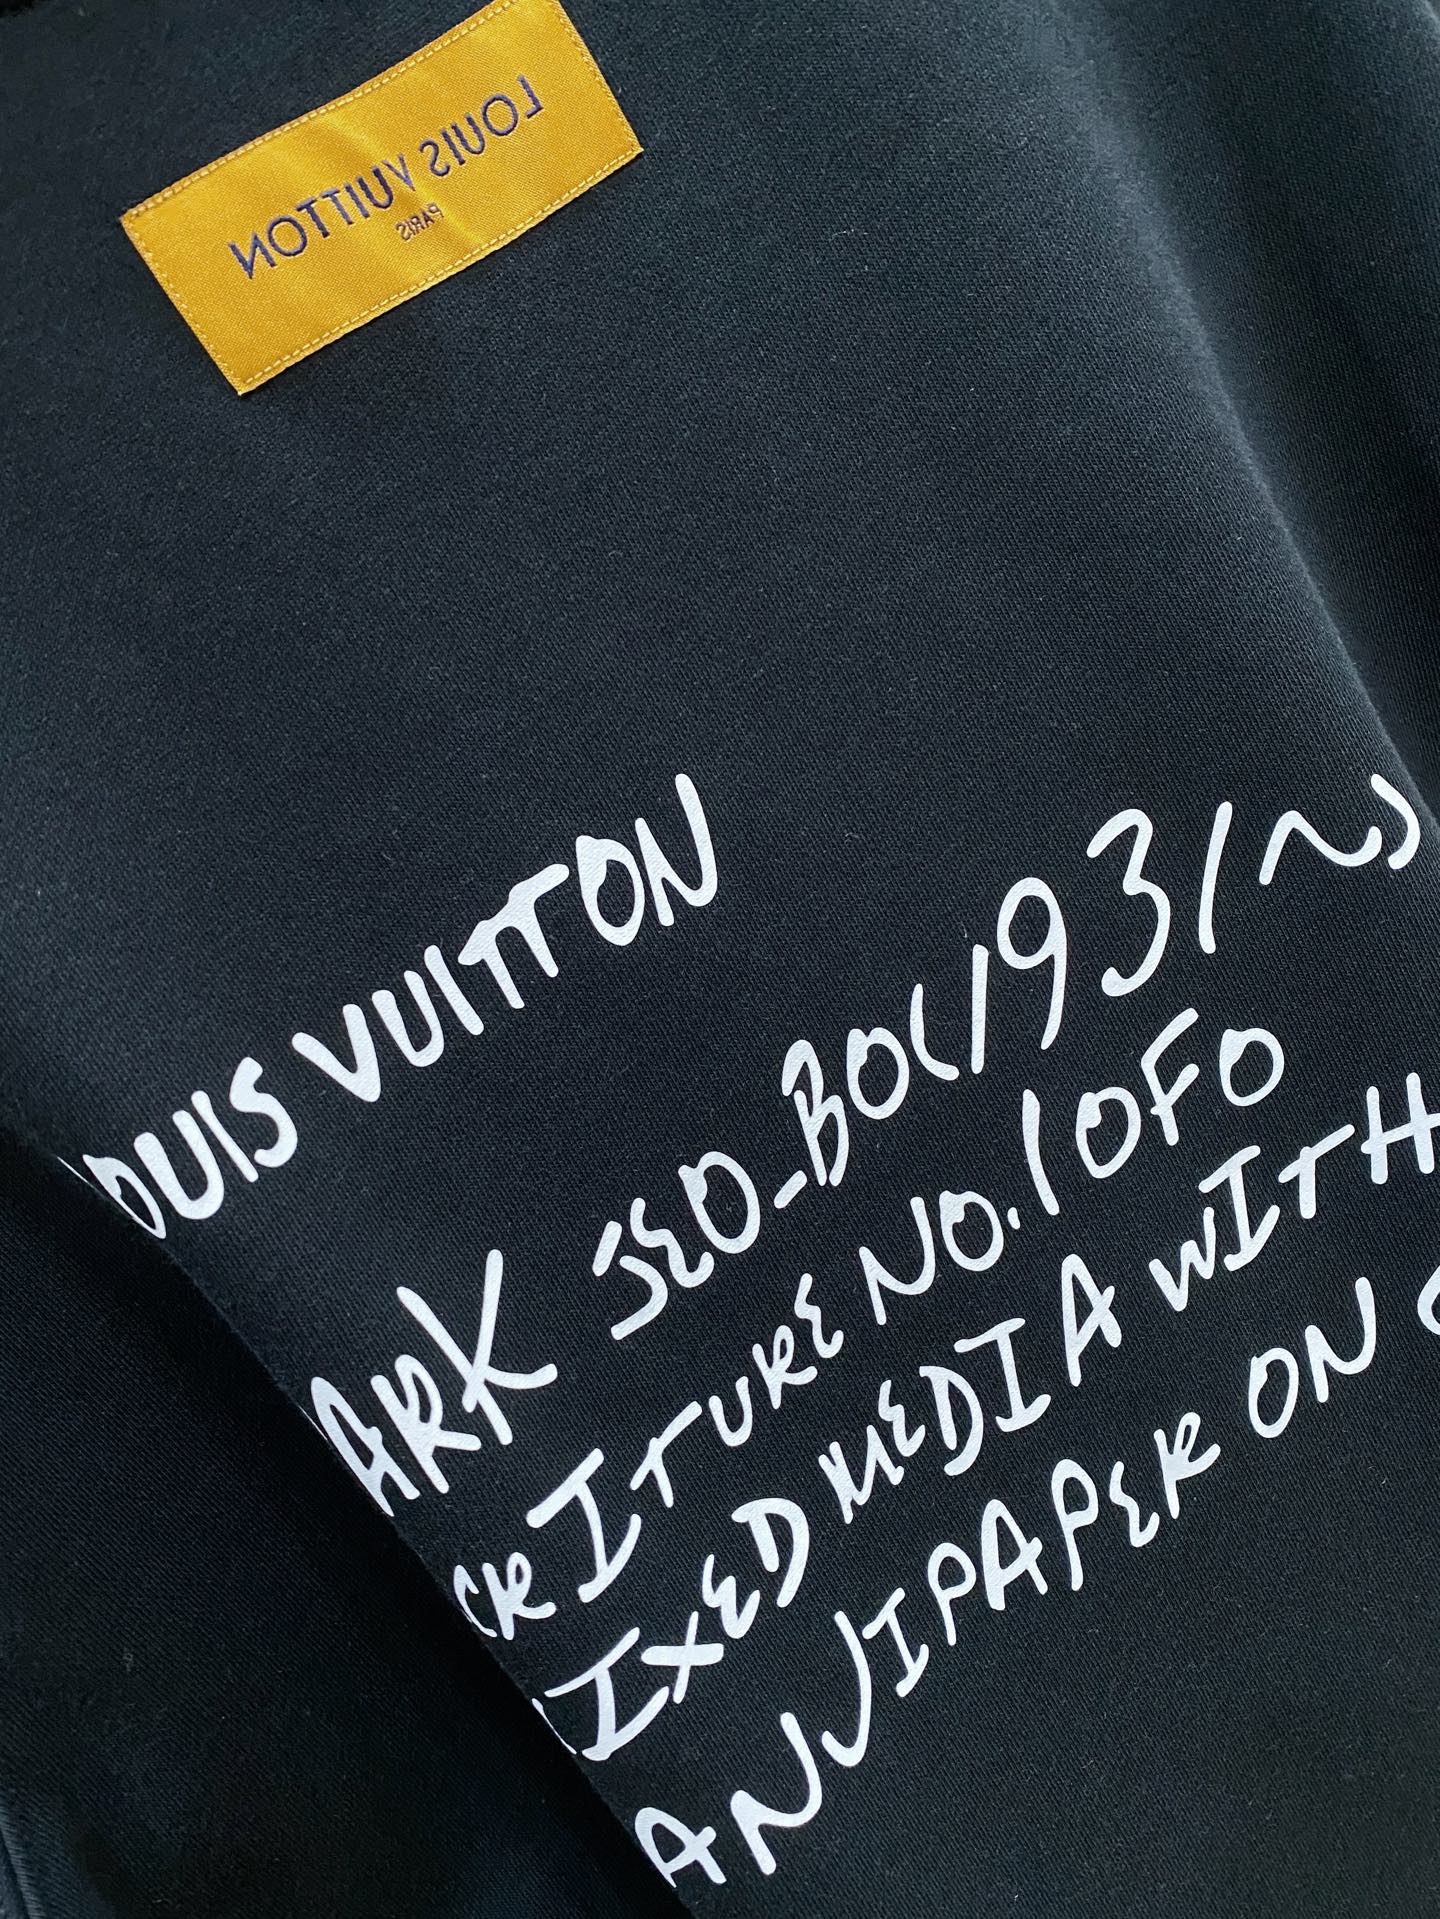 LOUIS VUITTON
PARIS
OUIS VUITTON
ARK SEO_BO(193/~)
CRITURE NO.10F0
IXED MEDIA WITH
ANJIPAPER ON